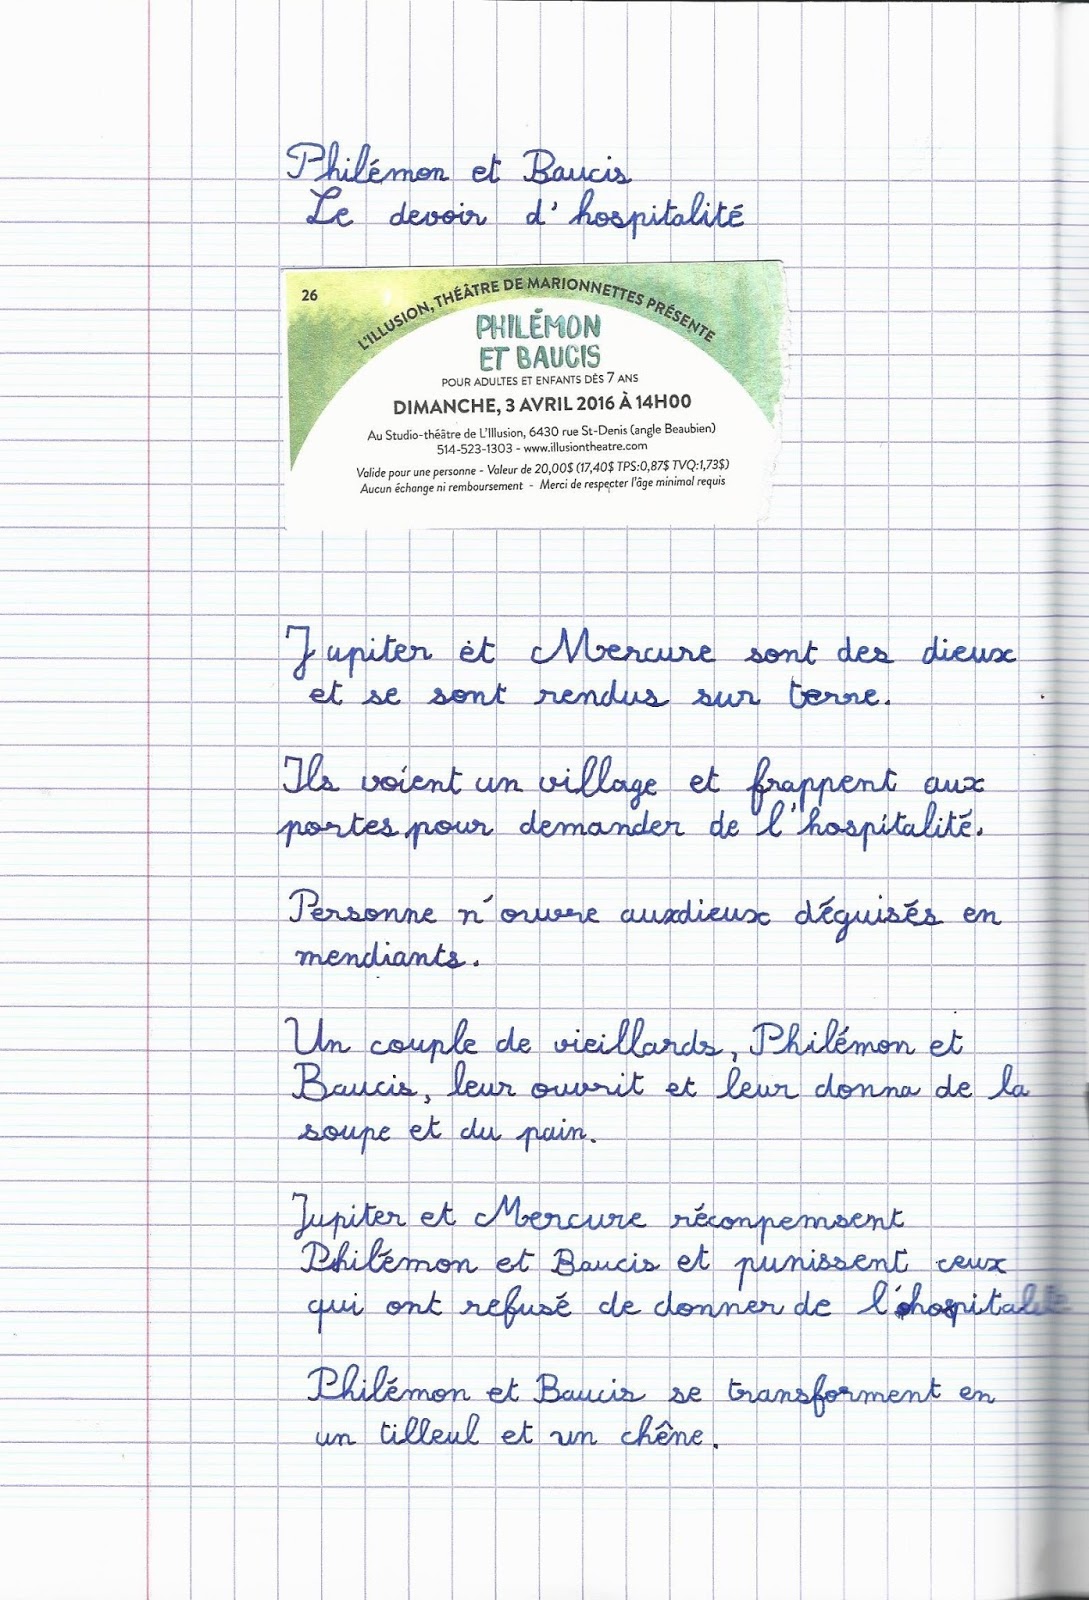 Philémon et Baucis
Le devoir d'hospitalité
26
L'ILLUSION, THÉÂTRE DE MARIONNETTES PRÉSENTE
PHILÉMON
ET BAUCIS
POUR ADULTES ET ENFANTS DÈS 7 ANS
DIMANCHE, 3 AVRIL 2016 À 14H00
Au Studio-théâtre de L'Illusion, 6430 rue St-Denis (angle Beaubien)
514-523-1303 - www.illusiontheatre.com
Valide pour une personne - Valeur de 20,00$ (17,40$ TPS:0,87$ TVQ:1,73$)
Aucun échange ni remboursement - Merci de respecter l'âge minimal requis
Jupiter et Mercure sont des dieux
et se sont rendus sur terre.
Ils voient un village et frappent aux
portes pour demander de l'hospitalité.
Personne n'ouvre auxdieux déguisés en
mendiants.
Un couple de vieillards, Philémon et
Baucis, leur ouvrit et leur donna de la
soupe et du pain.
Jupiter et Mercure réconpemsent
Philémon et Baucis et punissent ceux
qui ont refusé de donner de l'hospitalité
Philémon et Baucis se transforment en
un tilleul et un chêne.